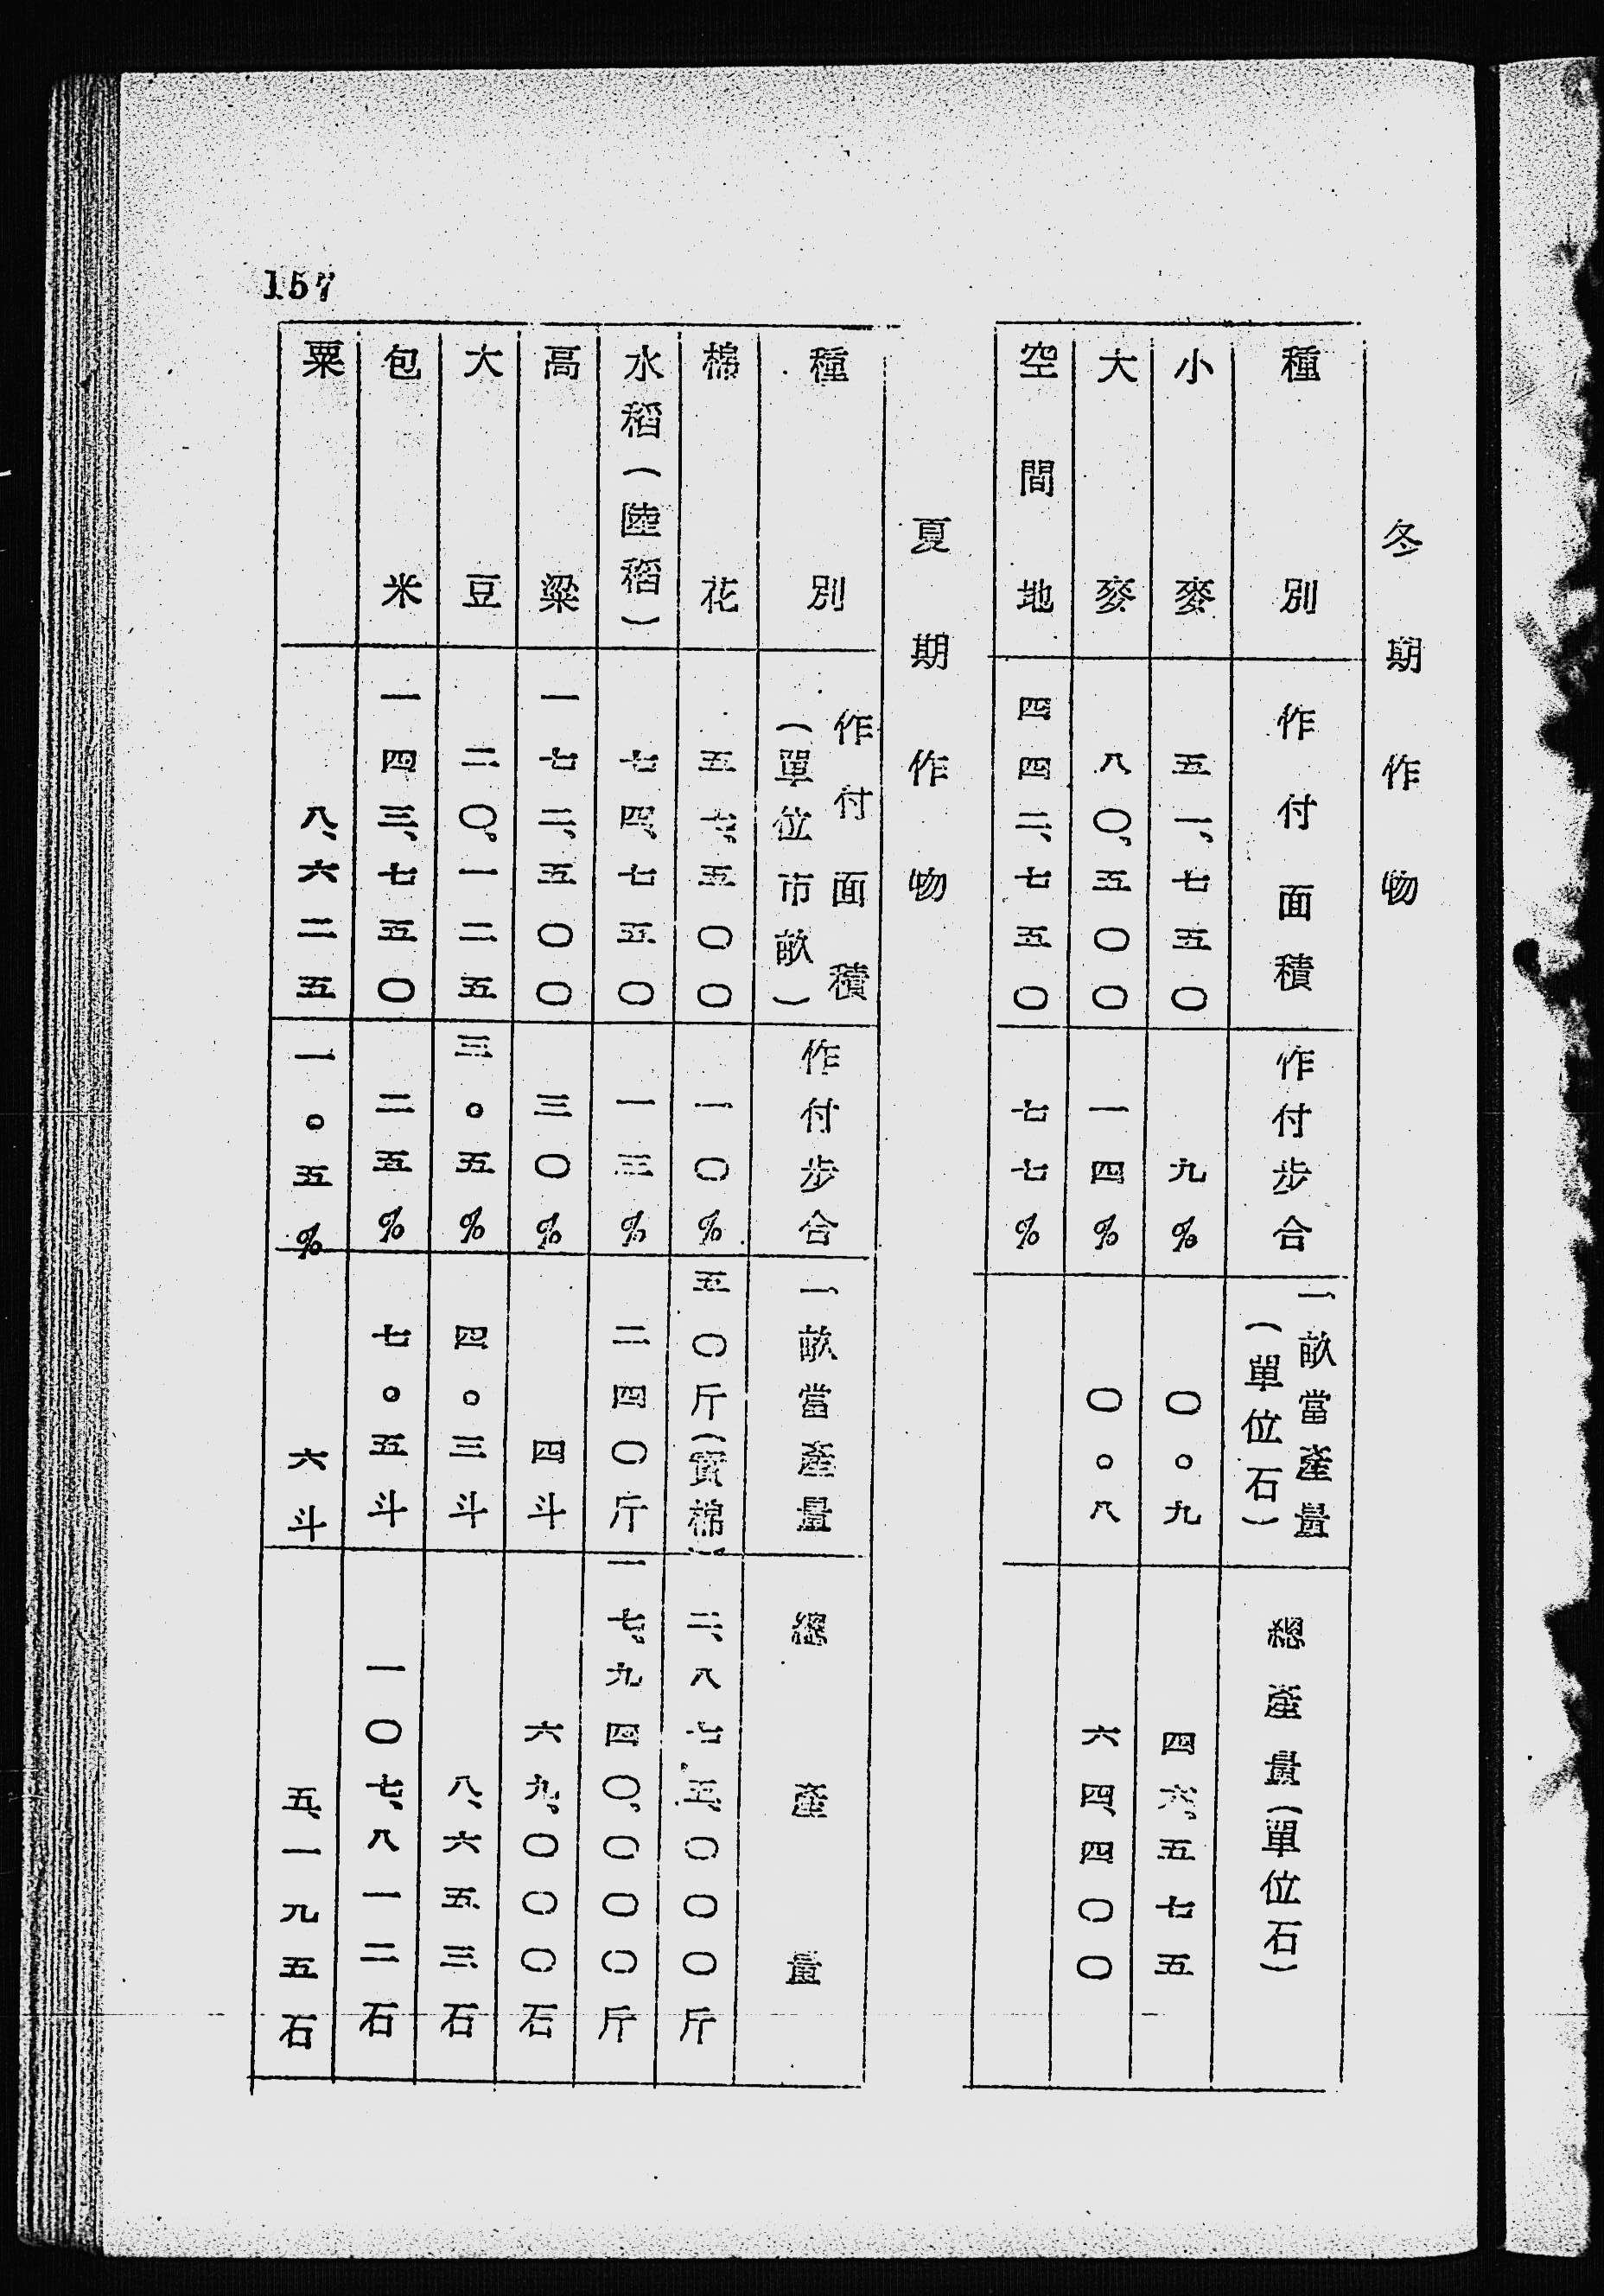 冬期作物
種別 作付面積 作付步合 一畝當產量(單位石) 總產量(單位石)
小麥 五一、七五〇 九% 〇。九 四六、五七五
大麥 八〇、五〇〇 一四% 〇。八 六四、四〇〇
空間地 四四二、七五〇 七七%
夏期作物
種別 作付面積(單位市畝) 作付步合 一畝當產量 總產量
棉花 五七、五〇〇 一〇% 五〇斤(實棉) 二、八七五、〇〇〇斤
水稻(陸稻) 七四、七五〇 一三% 二四〇斤 一七、九四〇、〇〇〇斤
高粱 一七二、五〇〇 三〇% 四斗 六九、〇〇〇石
大豆 二〇、一二五 三。五% 四。三斗 八、六五三石
包米 一四三、七五〇 二五% 七。五斗 一〇七、八一二石
粟 八、六二五 一。五% 六斗 五、一九五石
157